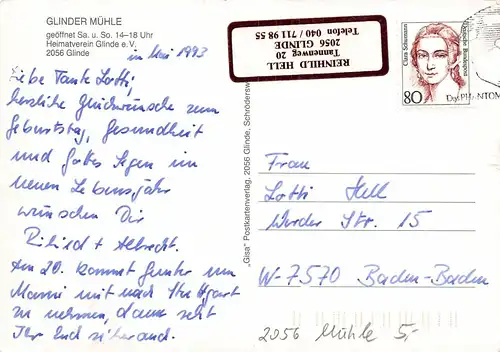 GLINDER MÜHLE
geöffnet Sa. u. So. 14–18 Uhr
Heimatverein Glinde e.V.
2056 Glinde
im Mai 1993
Liebe Tante Lotti,
herzliche Glückwünsche zum
Geburtstag, Gesundheit
und Gottes Segen im
neuen Lebensjahr
wünschen Dir
+ Albrecht.
Am 20. kommt Gunter um
Manni mit nach Stuttgart
zu nehmen, dann seht
Ihr Euch
"Gisa" Postkartenverlag, 2056 Glinde,
REINHILD HELL
Tannenweg 20
2056 GLINDE
Telefon 040 / 711 98 55
Clara Schumann
Deutsche Bundespost
80
Frau
Lotti Hell
Werder Str. 15
W-7570 Baden-Baden
2056 Mühle 5,-